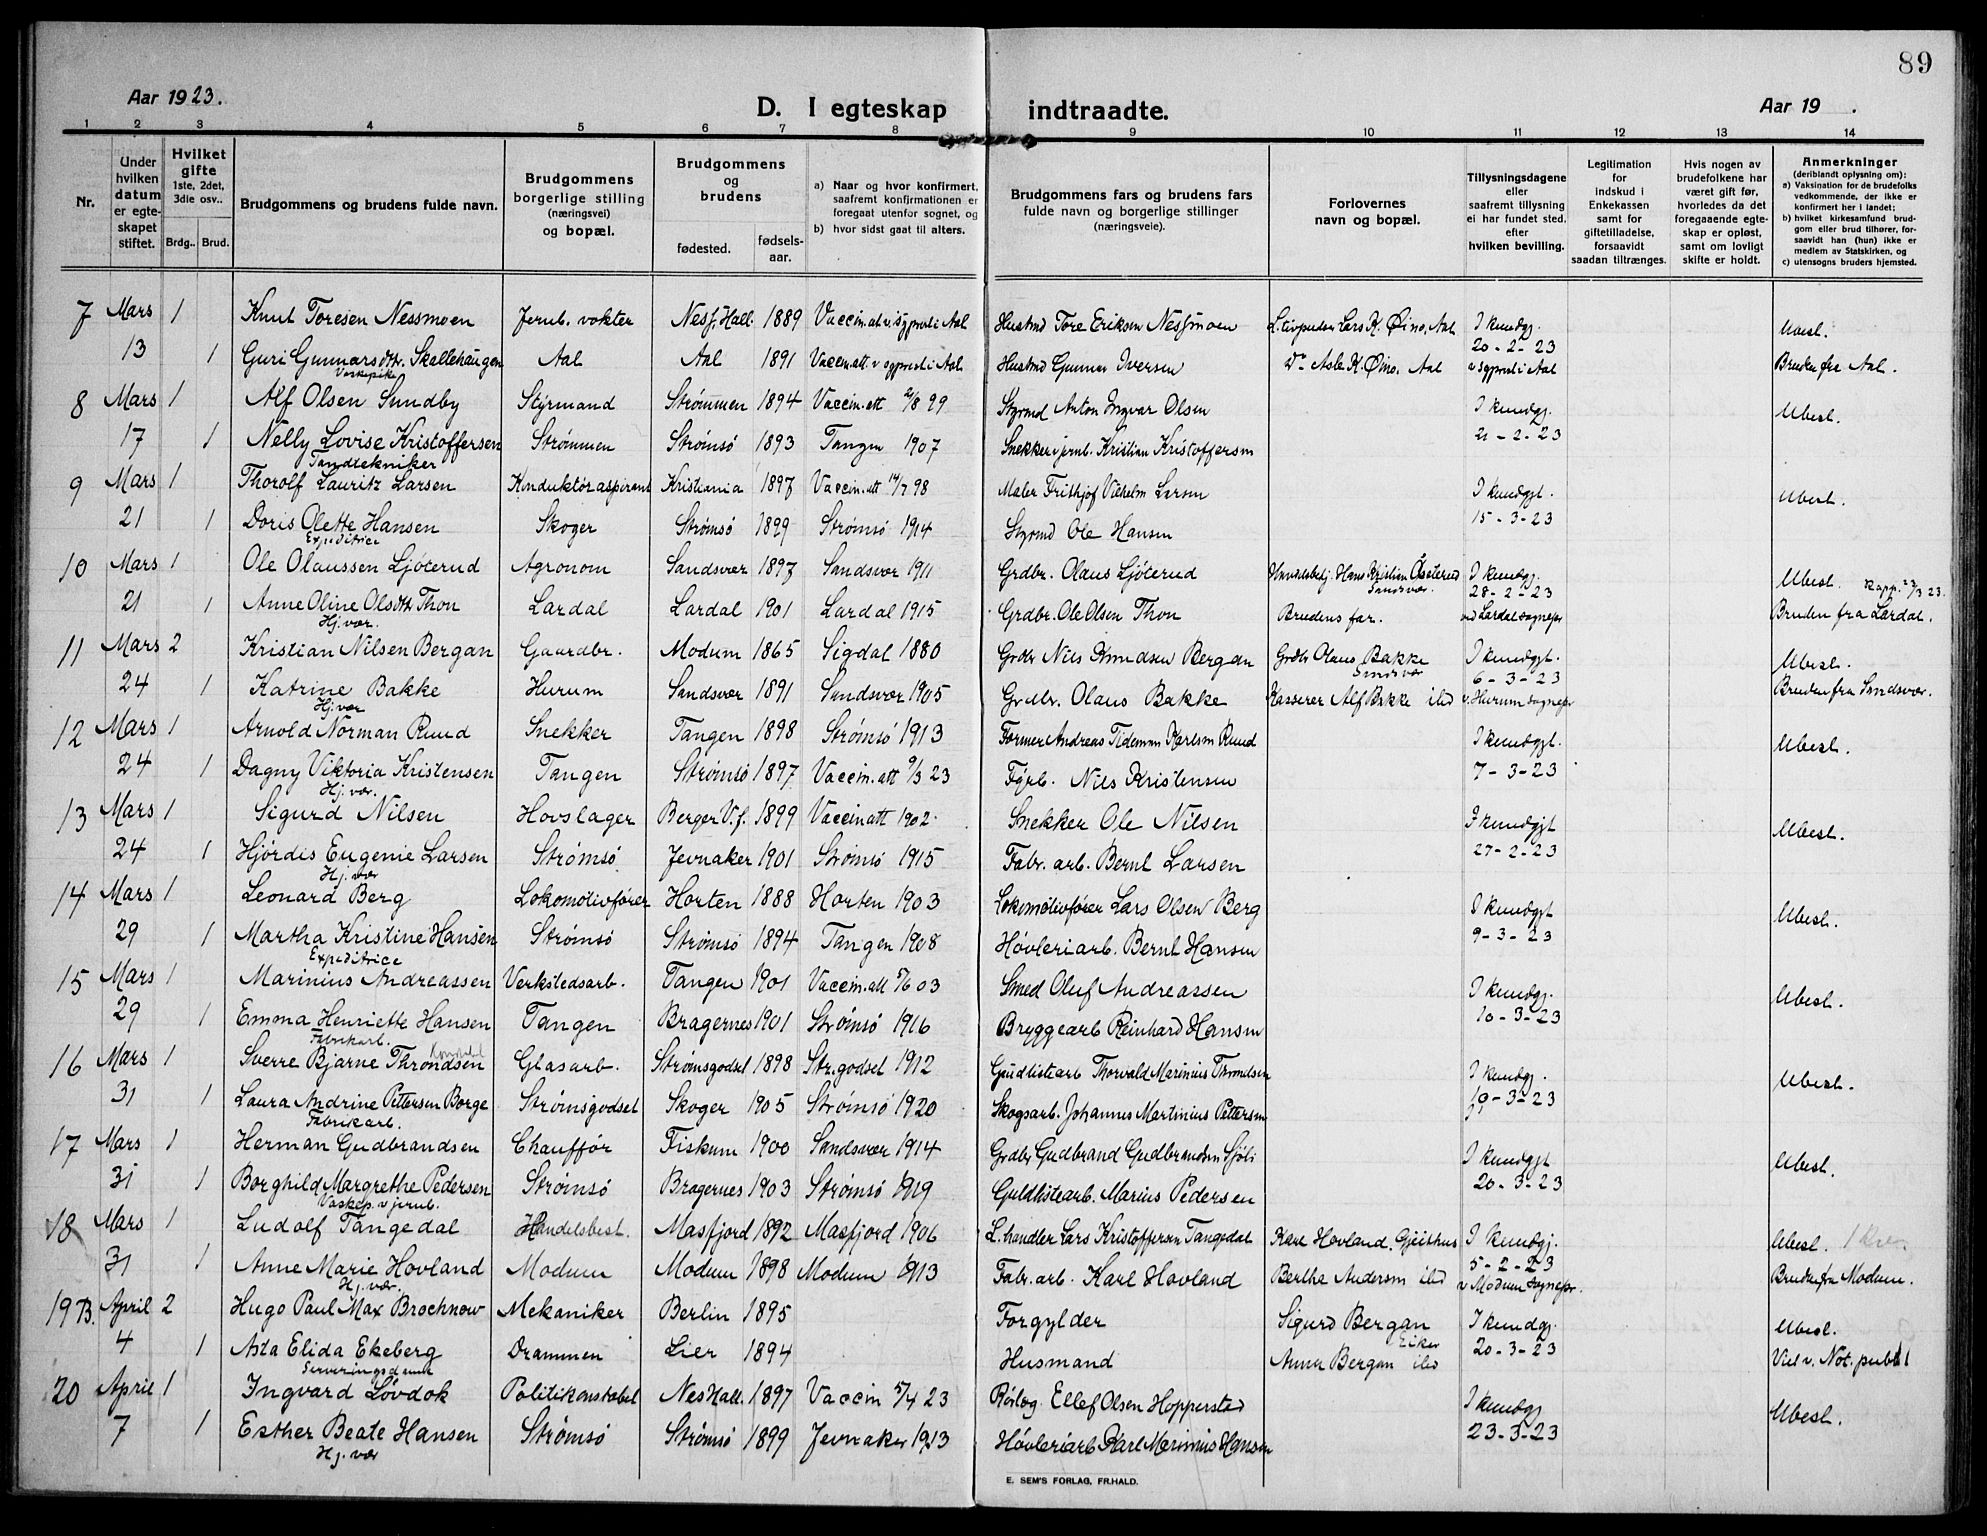 89
Aar 1923.
D. I egteskap indtraadte.
Aar 19 .
1 2 3 4 5 6 7 8 9 10 11 12 13 14
Nr.
Under hvilken datum er egteskapet stiftet.
Hvilket gifte 1ste, 2det, 3die osv..
Brdg.. Brud.
Brudgommens og brudens fulde navn.
Brudgommens borgerlige stilling (næringsvei) og bopæl.
Brudgommens og brudens
fødested. fødselsaar.
a) Naar og hvor konfirmert, saafremt konfirmationen er foregaat utenfor sognet, og
b) hvor sidst gaat til alters.
Brudgommens fars og brudens fars fulde navn og borgerlige stillinger (næringsveie).
Forlovernes navn og bopæl.
Tillysningsdagene eller saafremt tillysning ei har fundet sted, efter hvilken bevilling.
Legitimation for indskud i Enkekassen samt for giftetilladelse, forsaavidt saadan tiltrænges.
Hvis nogen av brudefolkene har været gift før, hvorledes da det foregaaende egteskap er opløst, samt om lovligt skifte er holdt.
Anmerkninger (deriblandt oplysning om):
a) Vaksination for de brudefolks vedkommende, der ikke er konfirmert her i landet;
b) hvilket kirkesamfund brudgom eller brud tilhører, forsaavidt han (hun) ikke er medlem av Statskirken, og
c) utensogns bruders hjemsted.
7 Mars 1 Knut Toresen Nessmoen Jernb. vokter Nes, Hall. 1889 Vaccin.att. v. sgprest i Aal Husmd Tore Eriksen Nessmoen Lars K. Øino, Aal I kundgj. Ubesl.
13 1 Guri Gunnarsdtr. Skallehaugen Aal Aal 1891 Vaccin.att. v sgprest i Aal Husmd Gunnar Iversen Do Asle K. Øino, Aal 20-2-23 v sgprest i Aal Bruden fra Aal.
Vaskepike
8 Mars 1 Alf Olsen Sundby Styrmand Strømmen 1894 Vaccin.att 2/8 99 Styrmd Anton Ingvar Olsen I kundgj. Ubesl.
17 1 Nelly Lovise Kristoffersen Strømmen Strømsø 1893 Tangen 1907 Snekker v jernb. Kristian Kristoffersen 21-2-23
Tandtekniker
9 Mars 1 Thorolf Lauritz Larsen Konduktøraspirant Kristiania 1897 Vaccin.att 14/7 98 Maler Frithjof Vilhelm Larsen I kundgjt. Ubesl.
21 1 Doris Olette Hansen Skoger Strømsø 1899 Strømsø 1914 Styrmd Ole Hansen 15-3-23
Expeditrice
10 Mars 1 Ole Olaussen Ljøterud Agronom Sandsvær 1897 Sandsvær 1911 Grdbr. Olaus Ljøterud Handelsbetj. Hans Kristian Sandsvær. I kundgj. Ubesl.
21 1 Anne Oline Olsdtr Thon Lardal Lardal 1901 Lardal 1915 Grdbr. Ole Olsen Thon Brudens far. 28-2-23 ved Lardal sognepr Bruden fra Lardal.
Hj. vær.
11 Mars 2 Kristian Nilsen Bergan Gaardbr. Modum 1865 Sigdal 1880 Grdbr Nils Knudsen Bergan Grdbr Olaus Bakke Sandsvær I kundgjt. Ubesl.
24 1 Katrine Bakke Hurum Sandsvær 1891 Sandsvær 1905 Grdbr. Olaus Bakke Kasserer Alf Bakke ibd 6-3-23 v. Hurum sognepr Bruden fra Sandsvær.
Hj. vær
12 Mars 1 Arnold Norman Ruud Snekker Tangen 1898 Strømsø 1913 Former Andreas Tidemann Karlsen Ruud I kundgjt. Ubesl.
24 1 Dagny Viktoria Kristensen Tangen Strømsø 1897 Vaccin.att 9/3 23 Fyrb. Nils Kristensen 7-3-23
Hj. vær.
13 Mars 1 Sigurd Nilsen Hovslager Berger V.f. 1899 Vaccin att 1902 Snekker Ole Nilsen I kundgjt Ubesl.
24 1 Hjørdis Eugenie Larsen Strømsø Jevnaker 1901 Strømsø 1915 Fabr. arb. Bernt Larsen 27-2-23
Hj. vær
14 Mars 1 Leonard Berg Lokomotivfører Horten 1888 Horten 1903 Lokomotivfører Lars Olsen Berg I kundgjt Ubesl.
29 1 Martha Kristine Hansen Strømsø Strømsø 1894 Tangen 1908 Høvleriarb. Bernt Hansen 9-3-23
Expeditrice
15 Mars 1 Marinius Andreassen Verkstedsarb. Tangen 1901 Vaccin.att 5/6 03 Smed Oluf Andreassen I kundgj. Ubesl.
29 1 Emma Henriette Hansen Tangen Bragernes 1901 Strømsø 1916 Bryggearb Reinhard Hansen 10-3-23
Fabrikarb.
16 Mars 1 Sverre Bjarne Throndsen Glasarb. Strømsgodset 1898 Str.godset 1912 Guldlistearb Thorvald Marinius Throndsen I kundgj. Ubesl.
31 1 Laura Andrine Pettersen Borge Strømsgodset Skoger 1905 Strømsø 1920 Skogsarb. Johannes Martinius Pettersen 19-3-23
Fabrikarb.
17 Mars 1 Herman Gudbrandsen Chauffør Fiskum 1900 Sandsvær 1914 Grdbr Gudbrand Gudbrandsen Sjøli I kundgjt Ubesl.
31 1 Borghild Margrethe Pedersen Strømsø Bragernes 1903 Strømsø 1919 Guldlistearb. Marius Pedersen 20-3-23
Vaskep. v jernb.
18 Mars 1 Ludolf Tangedal Handelsbest. Masfjord 1892 Masfjord 1906 L. handler Lars Kristoffersen Tangedal Karl Hovland. Gjeithus I kundgj. Ubesl.
31 1 Anne Marie Hovland Modum Modum 1898 Modum 1913 Fabr. arb. Karl Hovland Berthe Andersen ibd 5-2-23 v Modum sognepr. Bruden fra Modum.
Hj. vær.
19 B. April 2 Hugo Paul Max Brochnow Mekaniker Berlin 1895 Forgylder Sigurd Bergan Eiker I kundgj. Ubesl.
4 1 Asta Elida Ekeberg Drammen Lier 1894 Husmand Anna Bergan ibd 20-3-23 Viet v. Not. publ
Serveringsdame
20 April 1 Ingvard Løvdok Politikonstabel Nes Hall. 1897 Vaccin 5/4 23 Rørlæg. Ellef Olsen Hopperstad I kundgj Ubesl.
7 1 Esther Beate Hansen Strømsø Strømsø 1899 Jevnaker 1913 Høvleriarb Karl Marinius Hansen 23-3-23
Hj. vær
E. SEM'S FORLAG, FR.HALD.